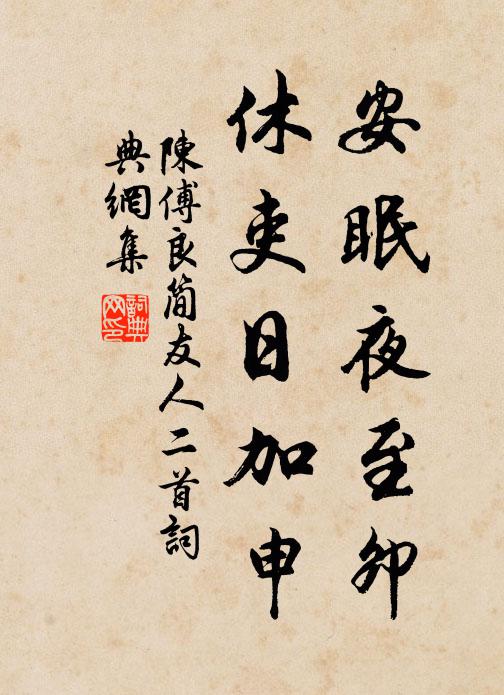 安眠夜至卯
休吏日加申
陳傅良簡友人二首詞
典網集
詞典网印